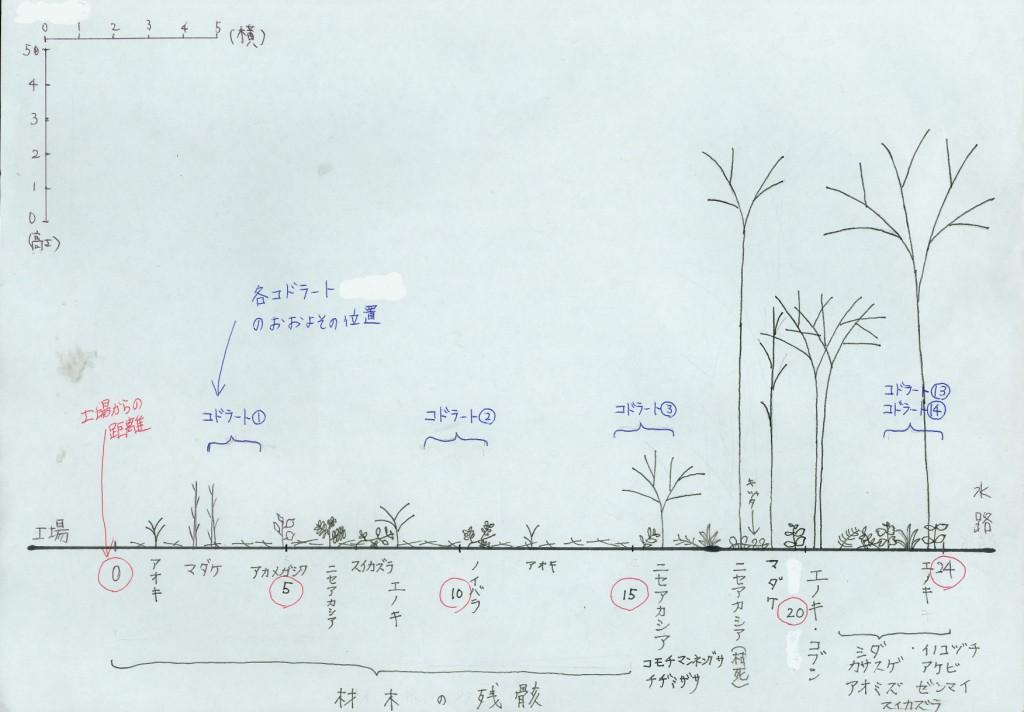 0 1 2 3 4 5 (横)
50
4
3
2
1
0
(高さ)
各コドラート
のおおよその位置
工場からの
距離
コドラート①
コドラート②
コドラート③
コドラート⑬
コドラート⑭
キヅタ
工場
水路
0
アオキ
マダケ
アカメガシワ
5
ニセアカシア
スイカズラ
エノキ
10
ノイバラ
アオキ
15
ニセアカシア
コモチマンネングサ
チヂミザサ
ニセアカシア(枯死)
マダケ
20
エノキ・コブシ
エノキ
24
シダ ・イノコヅチ
カサスゲ アケビ
アオミズ ゼンマイ
スイカズラ
材木の残骸